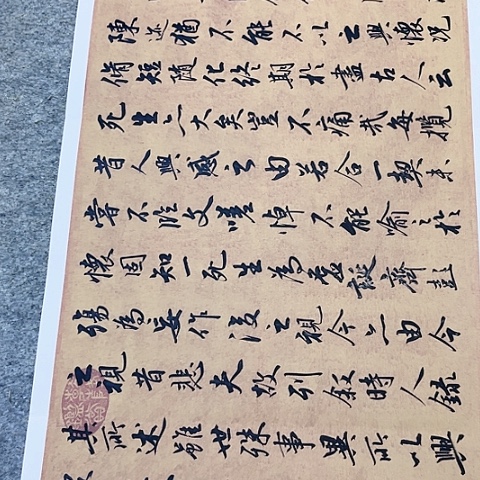 陳迹猶不能不以之興懷況
脩短隨化終期於盡古人云
死生亦大矣豈不痛哉每攬
昔人興感之由若合一契未
嘗不臨文嗟悼不能喻之於
懷固知一死生為虛誕齊彭
殤為妄作後之視今亦由今
之視昔悲夫故引叙時人錄
其所述雖世殊事異所以興